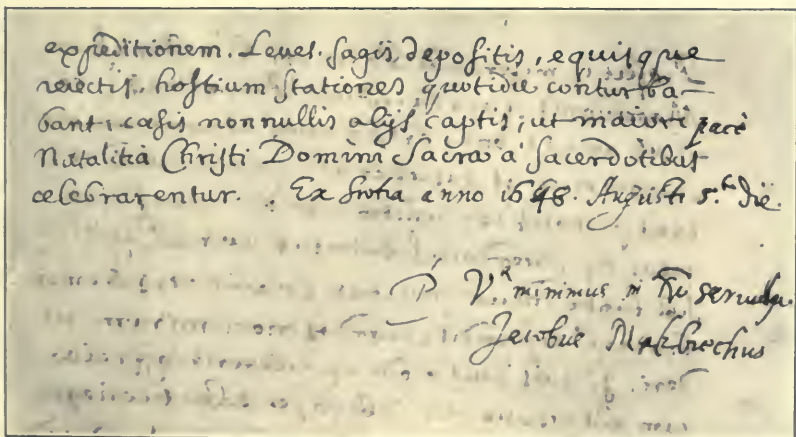 expeditionem. Leues sagis depositis, equisque
reiectis, hostium stationes quotidie conturba-
bant, cæsis nonnullis alijs captis; ut maiori pace
Natalitia Christi Domini Sacra a sacerdotibus
celebrarentur. Ex Scotia anno 1648. Augusti 5.ta die.
P. V. minimus in seruulus.
Jacobus Makbrechus